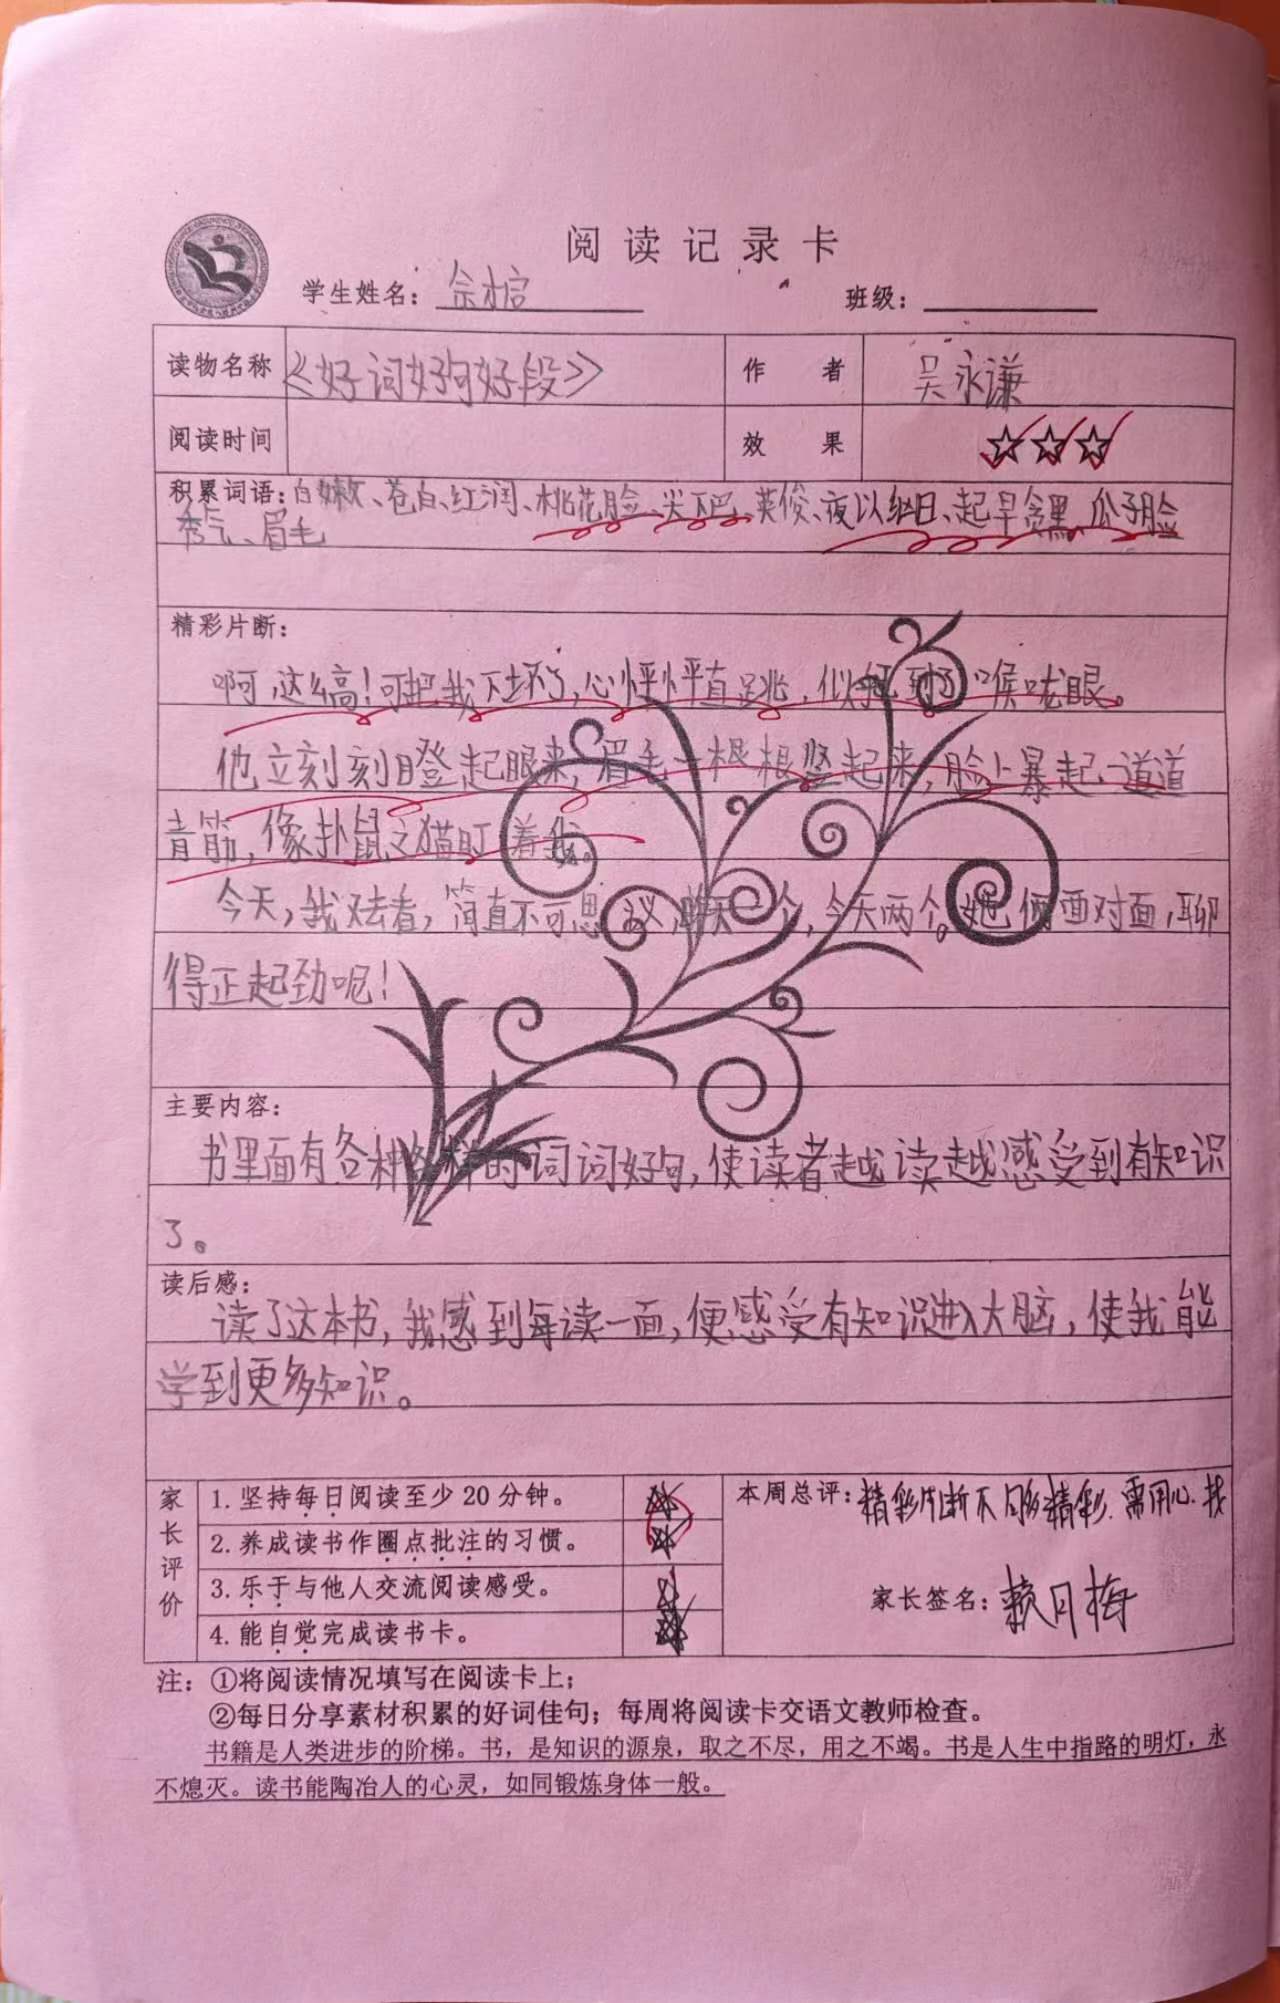 阅读记录卡
学生姓名： 班级：
读物名称 《好词好句好段》 作者 吴永谦
阅读时间 效果 ☆☆☆
积累词语：白嫩、苍白、红润、桃花脸、尖下巴、英俊、夜以继日、起早贪黑、瓜子脸
秀气、眉毛
精彩片断：
啊，这么高！可把我下坏了，心怦怦直跳，似乎到了喉咙眼。
他立刻刻瞪起眼来，眉毛一根根竖起来，脸上暴起一道道
青筋，像扑鼠之猫盯着我。
今天，我去看，简直不可思议，昨天一个，今天两个。她俩面对面，聊
得正起劲呢！
主要内容：
书里面有各种各样的词词好句，使读者越读越感受到有知识
了。
读后感：
读了这本书，我感到每读一面，便感受有知识进入大脑，使我能
学到更多知识。
家长评价
1.坚持每日阅读至少20分钟。
2.养成读书作圈点批注的习惯。
3.乐于与他人交流阅读感受。
4.能自觉完成读书卡。
本周总评：精彩片断不够精彩.需用心.找
家长签名：赖月梅
注：①将阅读情况填写在阅读卡上；
②每日分享素材积累的好词佳句；每周将阅读卡交语文教师检查。
书籍是人类进步的阶梯。书，是知识的源泉，取之不尽，用之不竭。书是人生中指路的明灯，永
不熄灭。读书能陶冶人的心灵，如同锻炼身体一般。